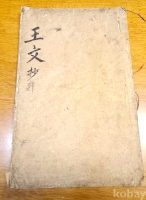 王文抄
kobay